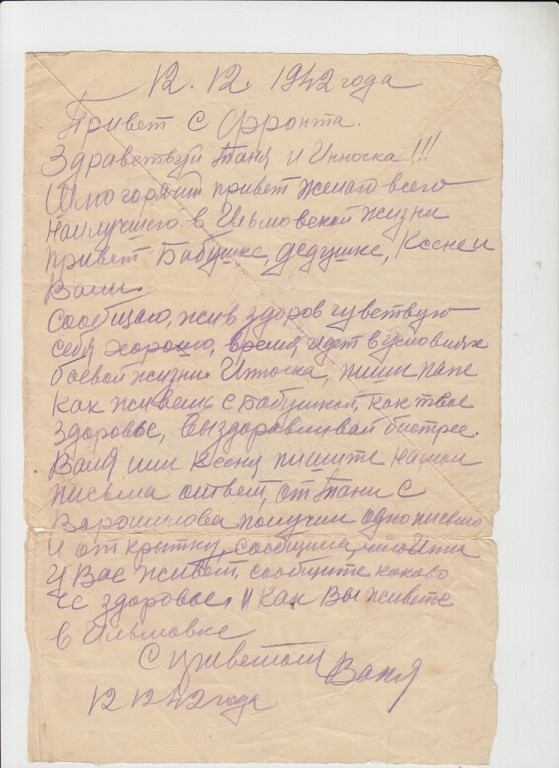 12. 12. 1942 года
Привет с фронта.
Здравствуй Таня и Инночка!!!
Шлю горячий привет желаю всего
наилучшего в Ильмовской жизни
привет Бабушке, дедушке, Ксене и
Вали.
Сообщаю, жив здоров чувствую
себя хорошо, время идет в условиях
боевой жизни. Инночка, пиши папе
как живешь с Бабушкой, как твое
здоровье, выздоравливай быстрее.
Валя или Ксеня пишите на мои
письма ответ, от Тани с
Ворошилова получил одно письмо
и открытку, сообщила, что Инна
у Вас живет, сообщите каково
ее здоровье, и как Вы живете
в Ильмовке
С приветом Ваня
12 12 42 года